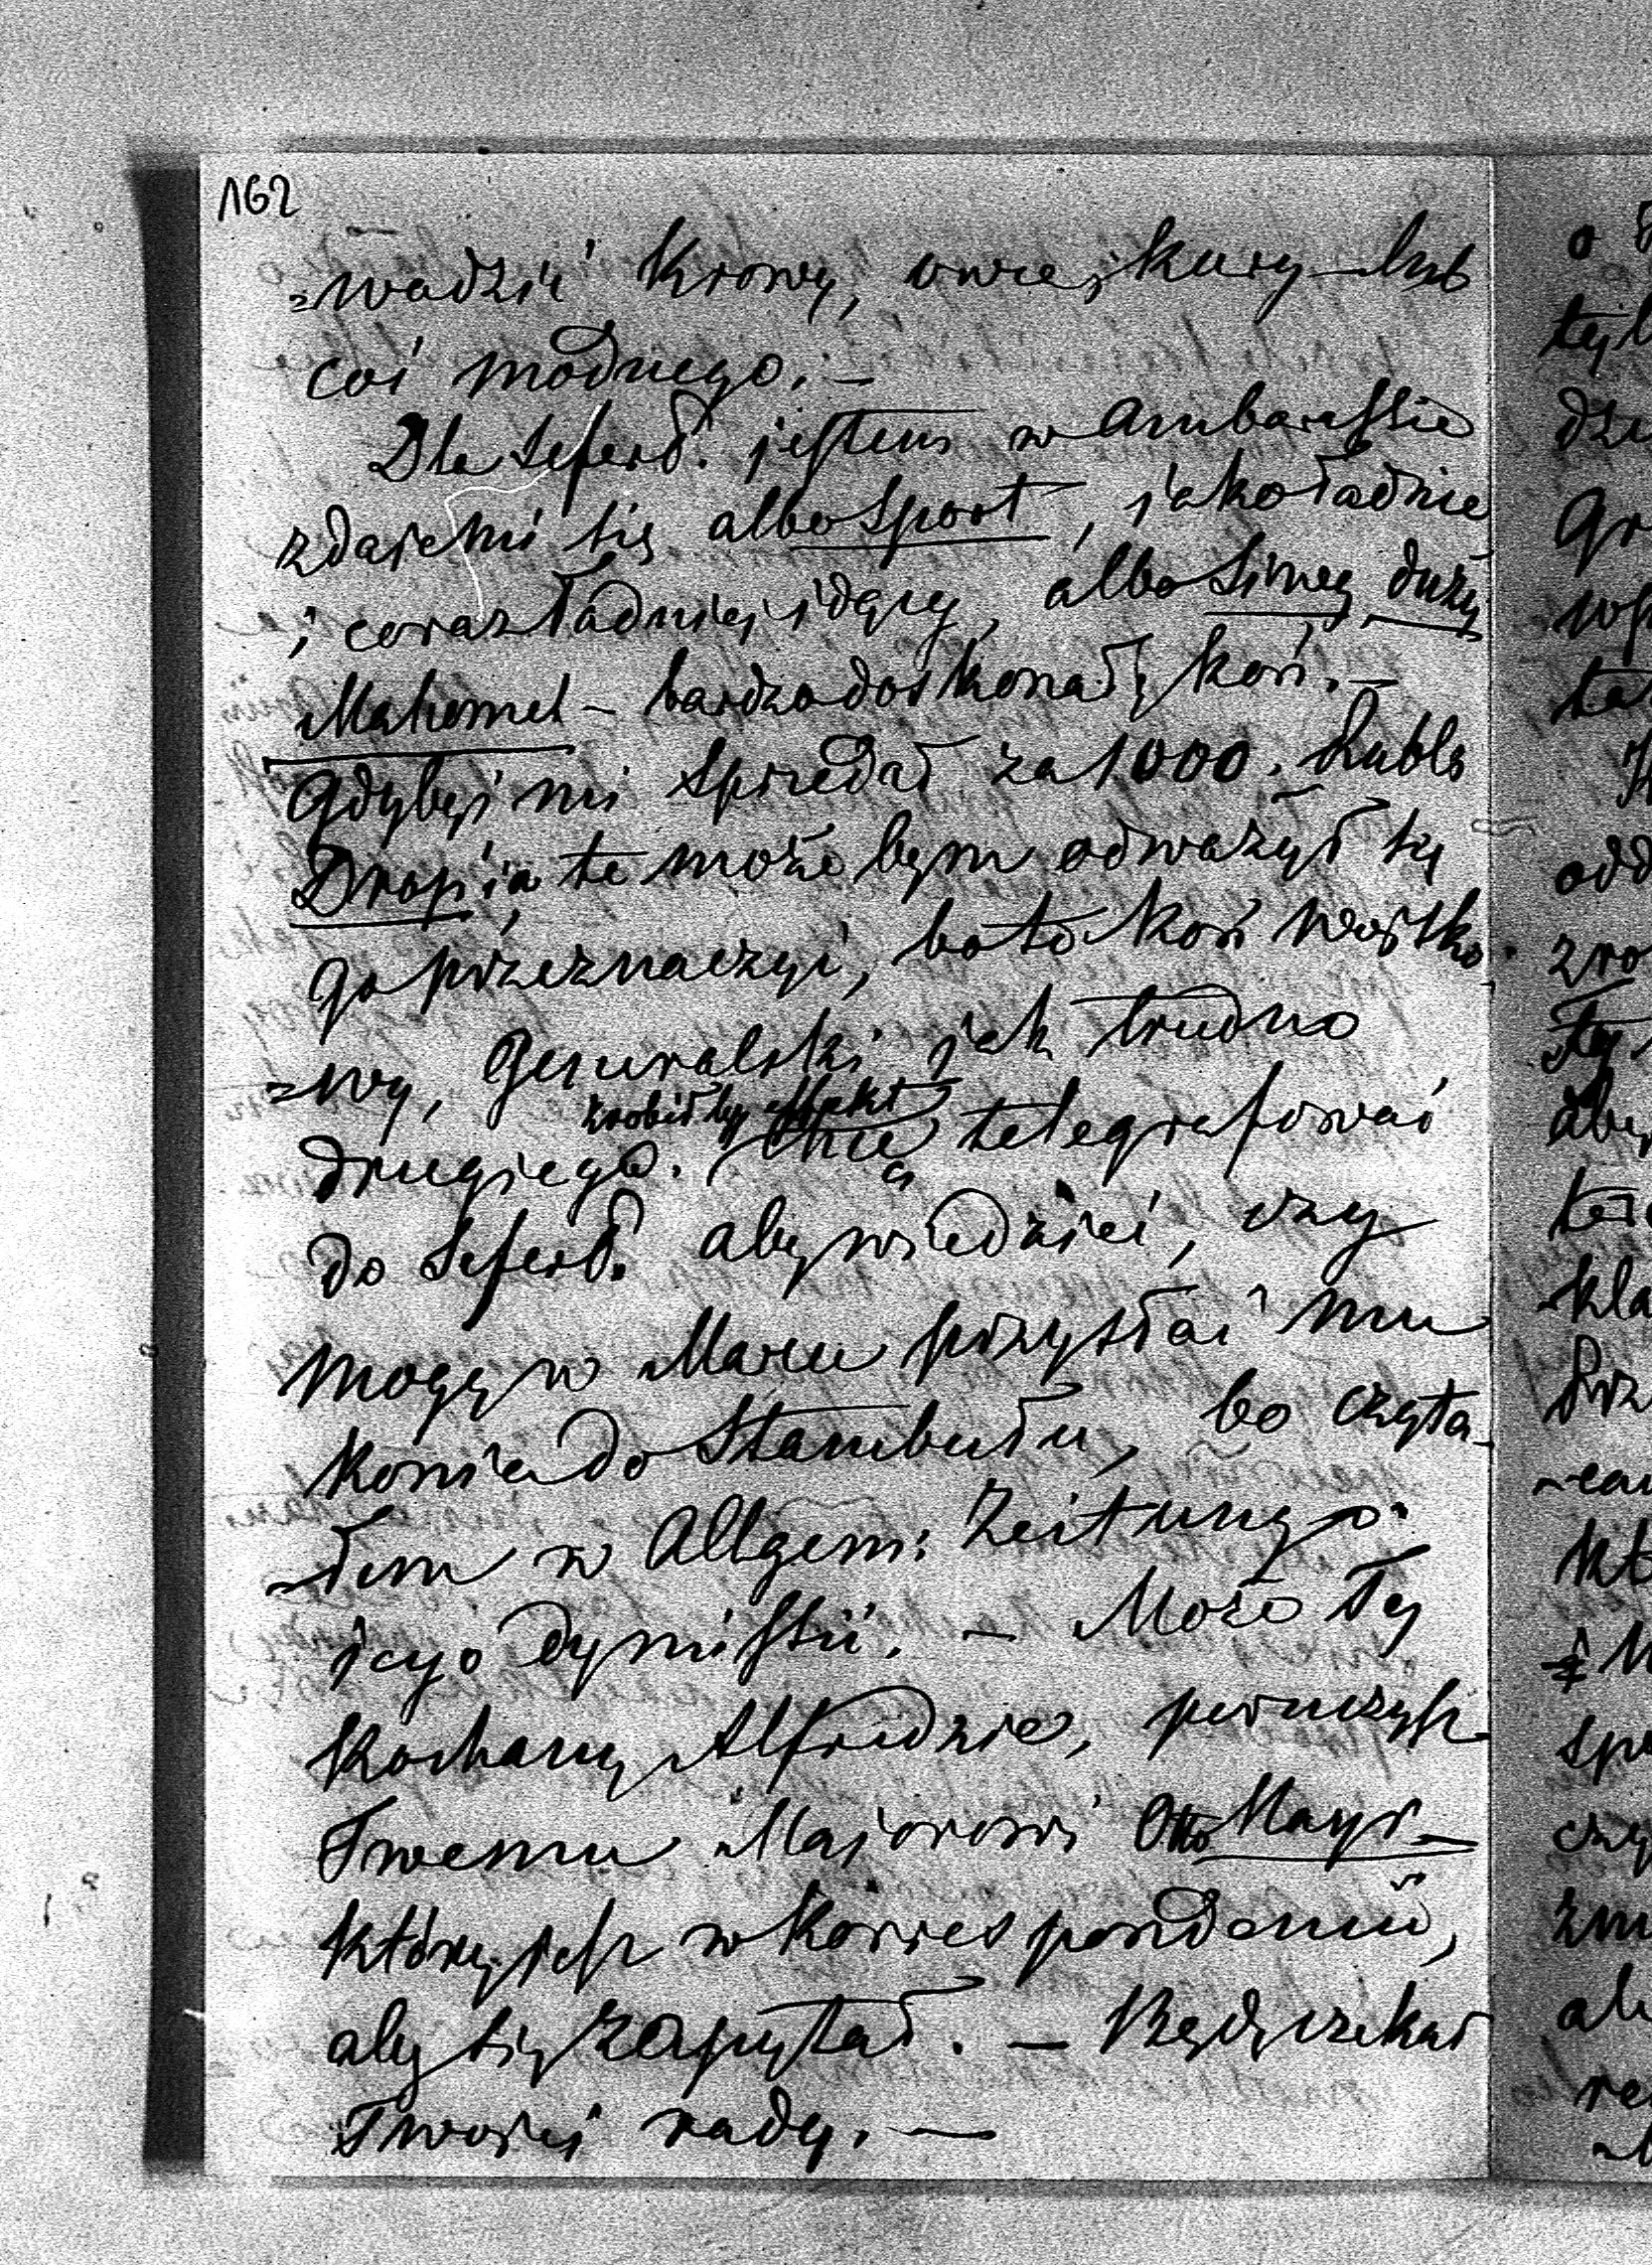 162
=wadzić krowy, owce, kury lub
coś modnego. —
Dla Seferb. jestem w ambarassie
zdaje mi się albo Sport, jako ładnie
i coraz ładniej idący, albo Siwy duży
Mahomet - bardzo doskonały koń. —
Gdybyś mi sprzedał za 1000. Rubls
Dropia, to może bym odważył się
go przeznaczyć, bo to koń wojsko-
=wy, Generalski jak trudno
zrobiłby effekt
drugiego. Chcę telegrafować
do Seferb. aby wiedzieć, czy
mogę w Marcu przysłać mu
konia do Stambułu, bo czyta-
-łem w Allgem: Zeitung o
jego dymissii. — Może Ty
Kochany Alfredzie, poruczysz
Twemu Majorowi Otto Mayr —
który jest w korrespondencii,
aby się zapytał. — Będę czekał
Twojej rady. —
o
dze
Gr
odd
zro
aby
kla
Prz
kt
spe
czy
al
re